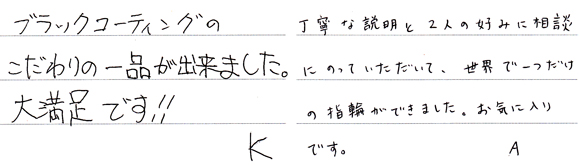 ブラックコーティングの
こだわりの一品が出来ました。
大満足です!!
K
丁寧な説明と2人の好みに相談
にのっていただいて、世界で一つだけ
の指輪ができました。お気に入り
です。 A